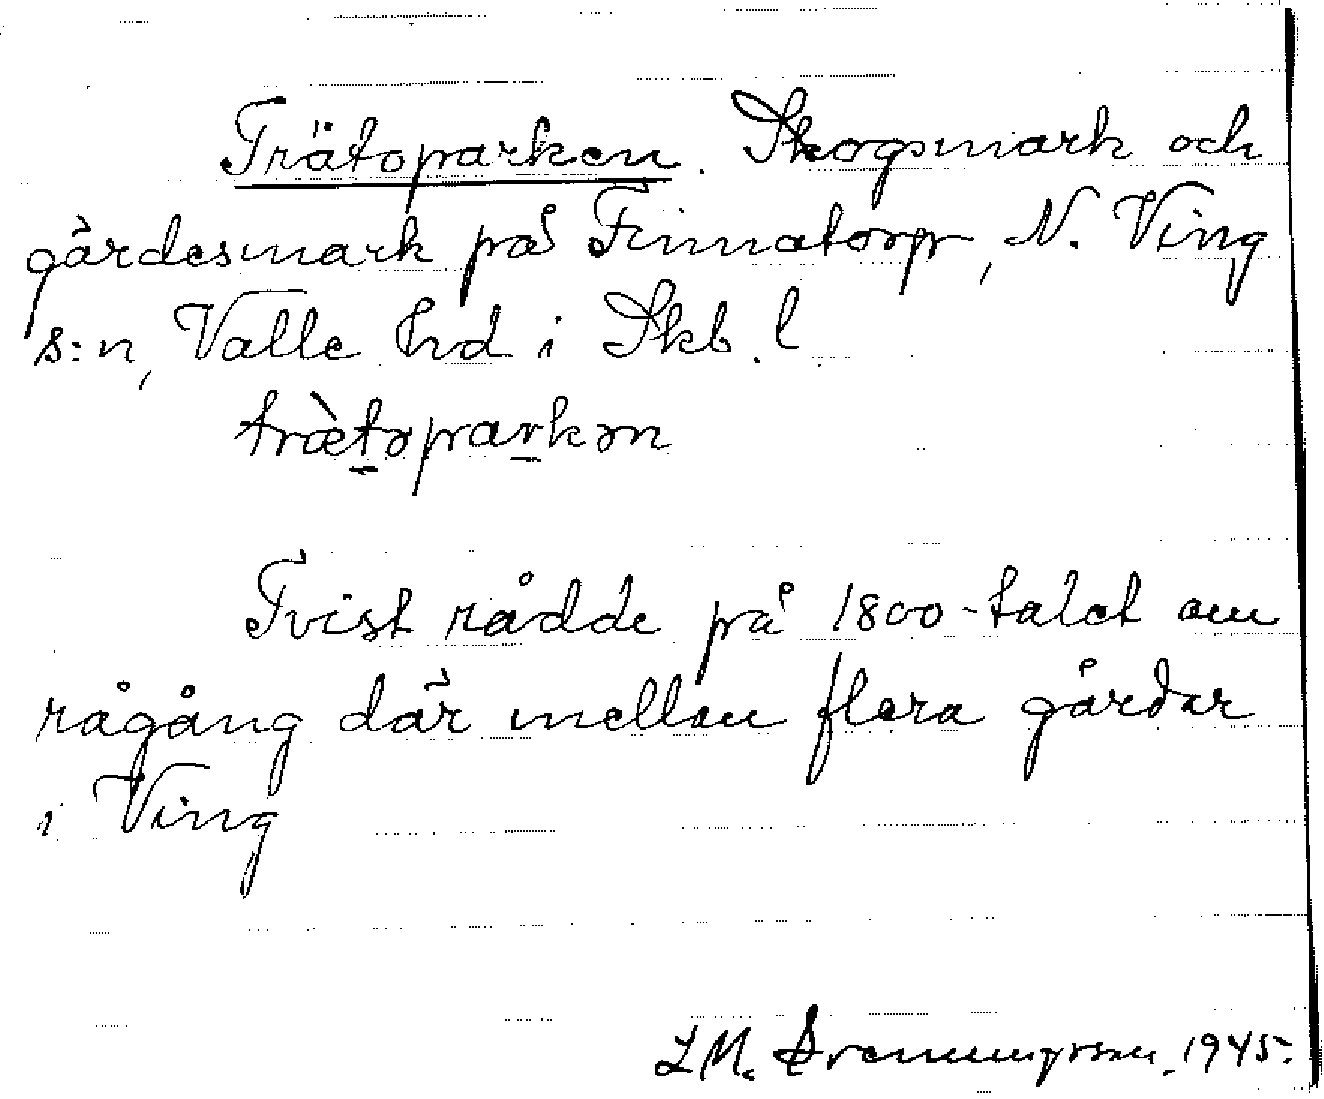 Trätoparken. Skogsmark och
gärdesmark på Finnatorp, N. Ving
s:n, Valle hd i Skb. l
træ̀toparkən
Tvist rådde på 1800-talet om
rågång där mellan flera gårdar
i Ving
L M. 1945.